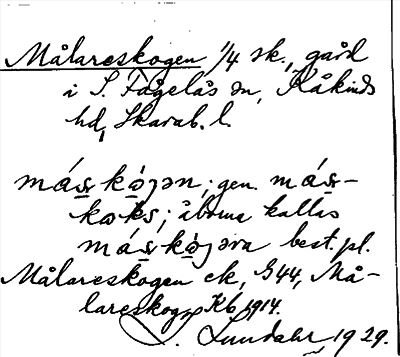 Målareskogen 1/4 sk., gård
i S. Fågelås sn, Kåkinds
hd, Skarab. l.
mǻs̱kò̱ɡən; gen. mǻs̱-
kɷks; åborna kallas
mǻs̱kò̱ɡəra best. pl.
Målareskogen ek, G44, Må-
lareskog Kb 1914.
J. Lundahl, 1929.